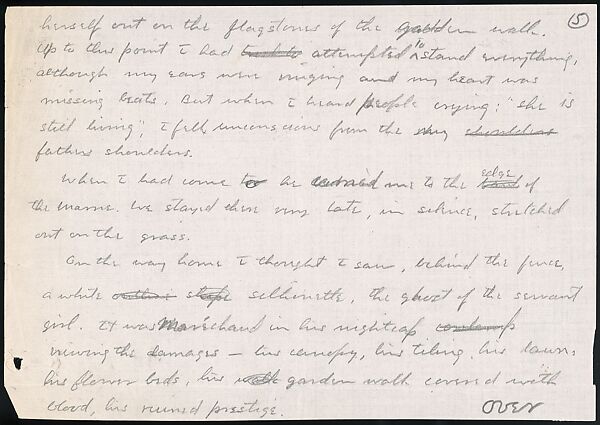 himself out on the flagstones of the garden walk. (5)
Up to this point I had attempted to stand everything,
although my ears were ringing and my heart was
missing beats. But when I heard people crying: "She is
still living", I fell unconscious from the my shoulders
fathers shoulders.
When I had come to he carried me to the edge of
the Marne. We stayed there very late, in silence, stretched
out on the grass.
On the way home I thought I saw, behind the fence,
a white shape silhouette, the ghost of the servant
girl. It was Maréchaud in his nightcap
viewing the damages — his canopy, his tiling, his lawns,
his flower beds, his walk garden walk covered with
blood, his ruined prestige. OVER